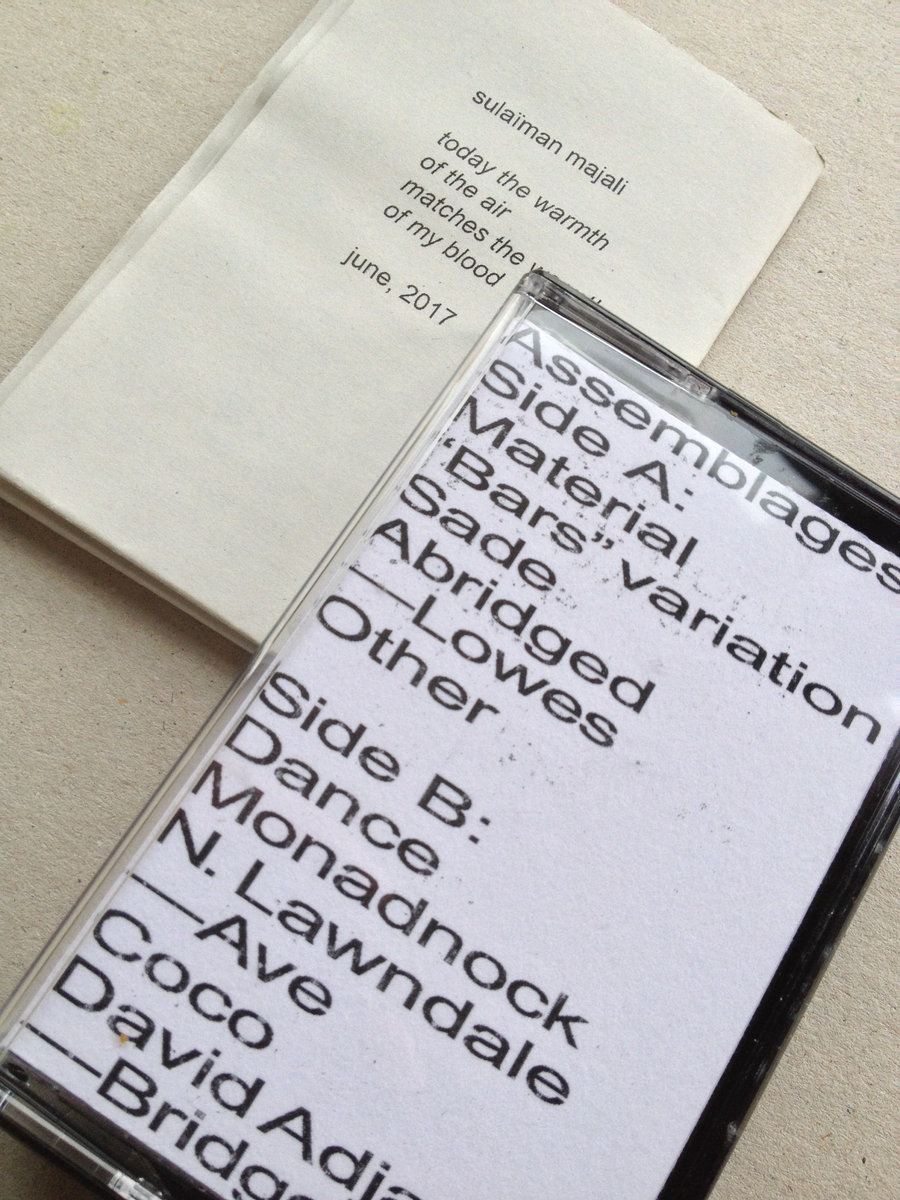 sulaïman majali
today the warmth
of the air
matches the
of my blood
june, 2017
Assemblages
Side A:
Material
“Bars” variation
Sade
Abridged
—Lowes
Other
Side B:
Dance
Monadnock
N. Lawndale
—Ave
Coco
David